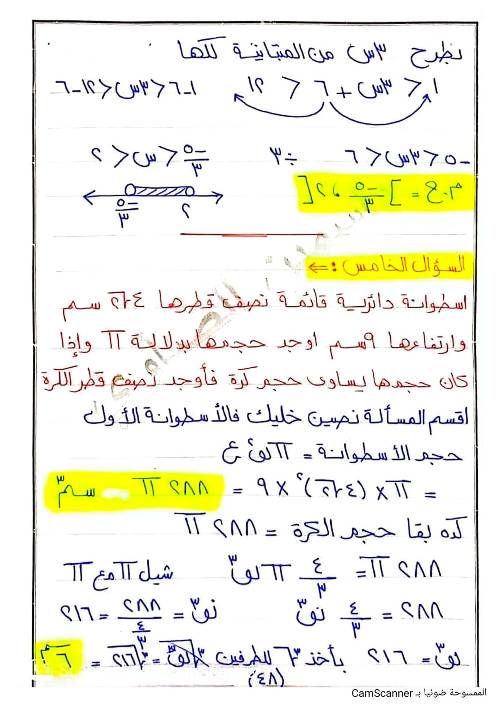 نطرح ٣س من المتباينة كلها
١ < ٣س + ٦ < ١٢    ١-٦ < ٣س < ١٢-٦
-٥ < ٣س < ٦    ÷٣    -٥/٣ < س < ٢
م.ح = ]-٥/٣ ، ٢[    -٥/٣    ٢
السؤال الخامس:←
اسطوانة دائرية قائمة نصف قطرها ٤√٢ سم
وارتفاعها ٩سم اوجد حجمها بدلالة π وإذا
كان حجمها يساوى حجم كرة فأوجد نصف قطر الكرة
اقسم المسألة نصين خليك فالأسطوانة الأول
حجم الأسطوانة = π نق² ع
= π × (٤√٢)² × ٩ = ٢٨٨ π سم³
كده بقا حجم الكرة = ٢٨٨ π
٢٨٨ π = ٤/٣ π نق³    شيل π مع π
٢٨٨ = ٤/٣ نق³    نق³ = ٢٨٨ / ٤/٣ = ٢١٦
نق³ = ٢١٦ بأخذ ∛ للطرفين ∛نق³ = ∛٢١٦ = ٦سم
(٤٨)
الممسوحة ضوئيا بـ CamScanner